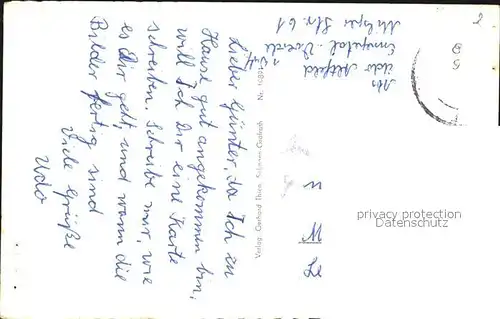 Abs
Udo Altfeld
Ennepetal-Voerde
Str. 61
Lieber Günter, da Ich zu
Hause gut angekommen bin,
will Ich Dir eine Karte
schreiben. Schreibe mir, wie
es Dir geht, und wann die
Bilder fertig sind
Viele Grüße
Udo
Verlag Gerhard
Nr.
privacy protection
Datenschutz